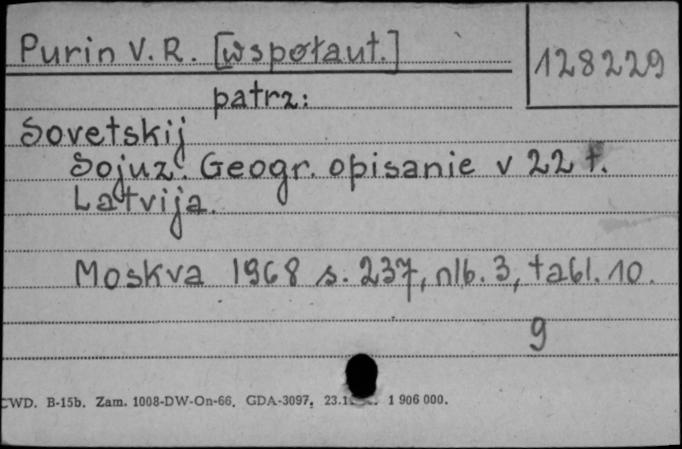 Purin V. R. [współaut.]
128229
patrz:
Sovetskij
Sojuz. Geogr. opisanie v 22 t.
Latvija.
Moskva 1968 s. 237, nlb. 3, tabl. 10.
9
CWD. B-15b. Zam. 1008-DW-On-66. GDA-3097, 1 906 000.